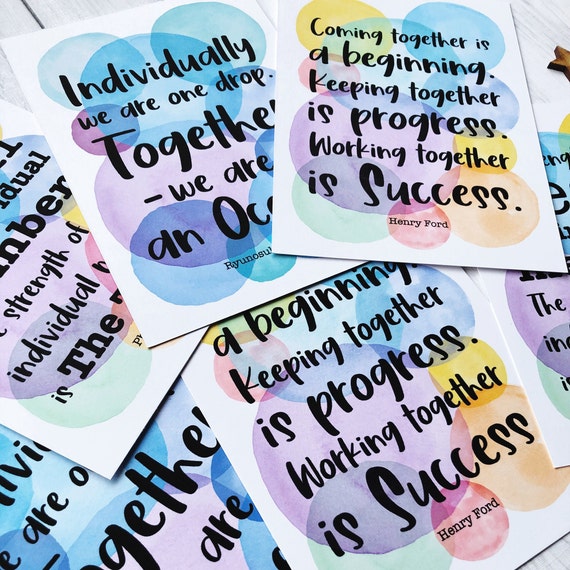 Individually
we are one drop.
Together
- we are
an
Coming together is
a beginning.
Keeping together
is progress.
Working together
is Success.
Henry Ford
strength of
individual
is The
a beginning.
Keeping together
is progress.
Working together
is Success
Henry Ford
we are
The